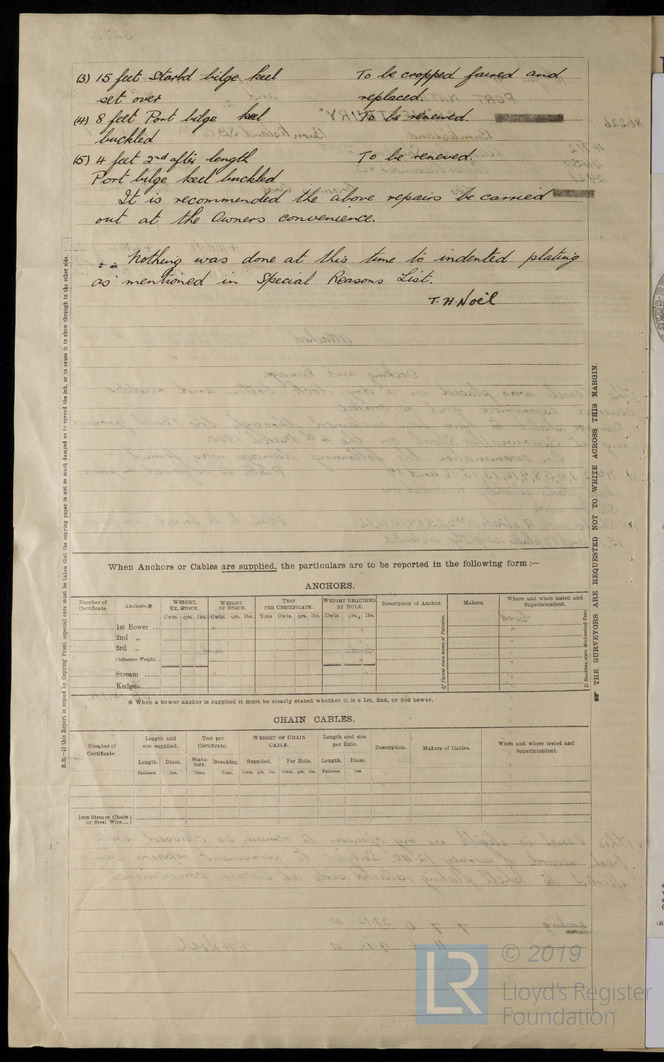 (3) 15 feet Starbd bilge keel To be cropped faired and
set over replaced.
(4) 8 feet Port bilge keel To be renewed.
buckled
(5) 4 feet 2nd after length To be renewed.
Port bilge keel buckled
It is recommended the above repairs be carried
out at the Owners convenience.
Nothing was done at this time to indented plating
as mentioned in Special Reasons List.
T. H. Noël
When Anchors or Cables are supplied, the particulars are to be reported in the following form:—
ANCHORS.
Number of Certificate. Anchors.* WEIGHT, EX. STOCK. WEIGHT OF STOCK. TEST PER CERTIFICATE. WEIGHT REQUIRED BY RULE. Description of Anchor. Makers. Where and when tested and Superintendent.
Cwts. qrs. lbs. Cwts. qrs. lbs. Tons Cwts. qrs. lbs. Cwts. qrs. lbs.
1st Bower ...
2nd „
3rd „
Collective Weight.
Stream ......
Kedge........
* When a bower anchor is supplied it must be clearly stated whether it is a 1st, 2nd, or 3rd bower.
CHAIN CABLES.
Number of Certificate. Length and size supplied. Test per Certificate. WEIGHT OF CHAIN CABLE. Length and size per Rule. Description. Makers of Cables. When and where tested and Superintendent.
Length. Diam. Statutory. Breaking Supplied. Per Rule. Length. Diam.
Fathoms. Ins. Tons. Tons. Cwts. qrs. lbs. Cwts. qrs. lbs. Fathoms. Ins
Iron Stream Chain
or Steel Wire...
N.B.—If this Report is copied by Copying Press, especial care must be taken that the copying paper is not so much damped as to spread the ink, or to cause it to show through to the other side.
THE SURVEYORS ARE REQUESTED NOT TO WRITE ACROSS THIS MARGIN.
LR
© 2019
Lloyd's Register
Foundation